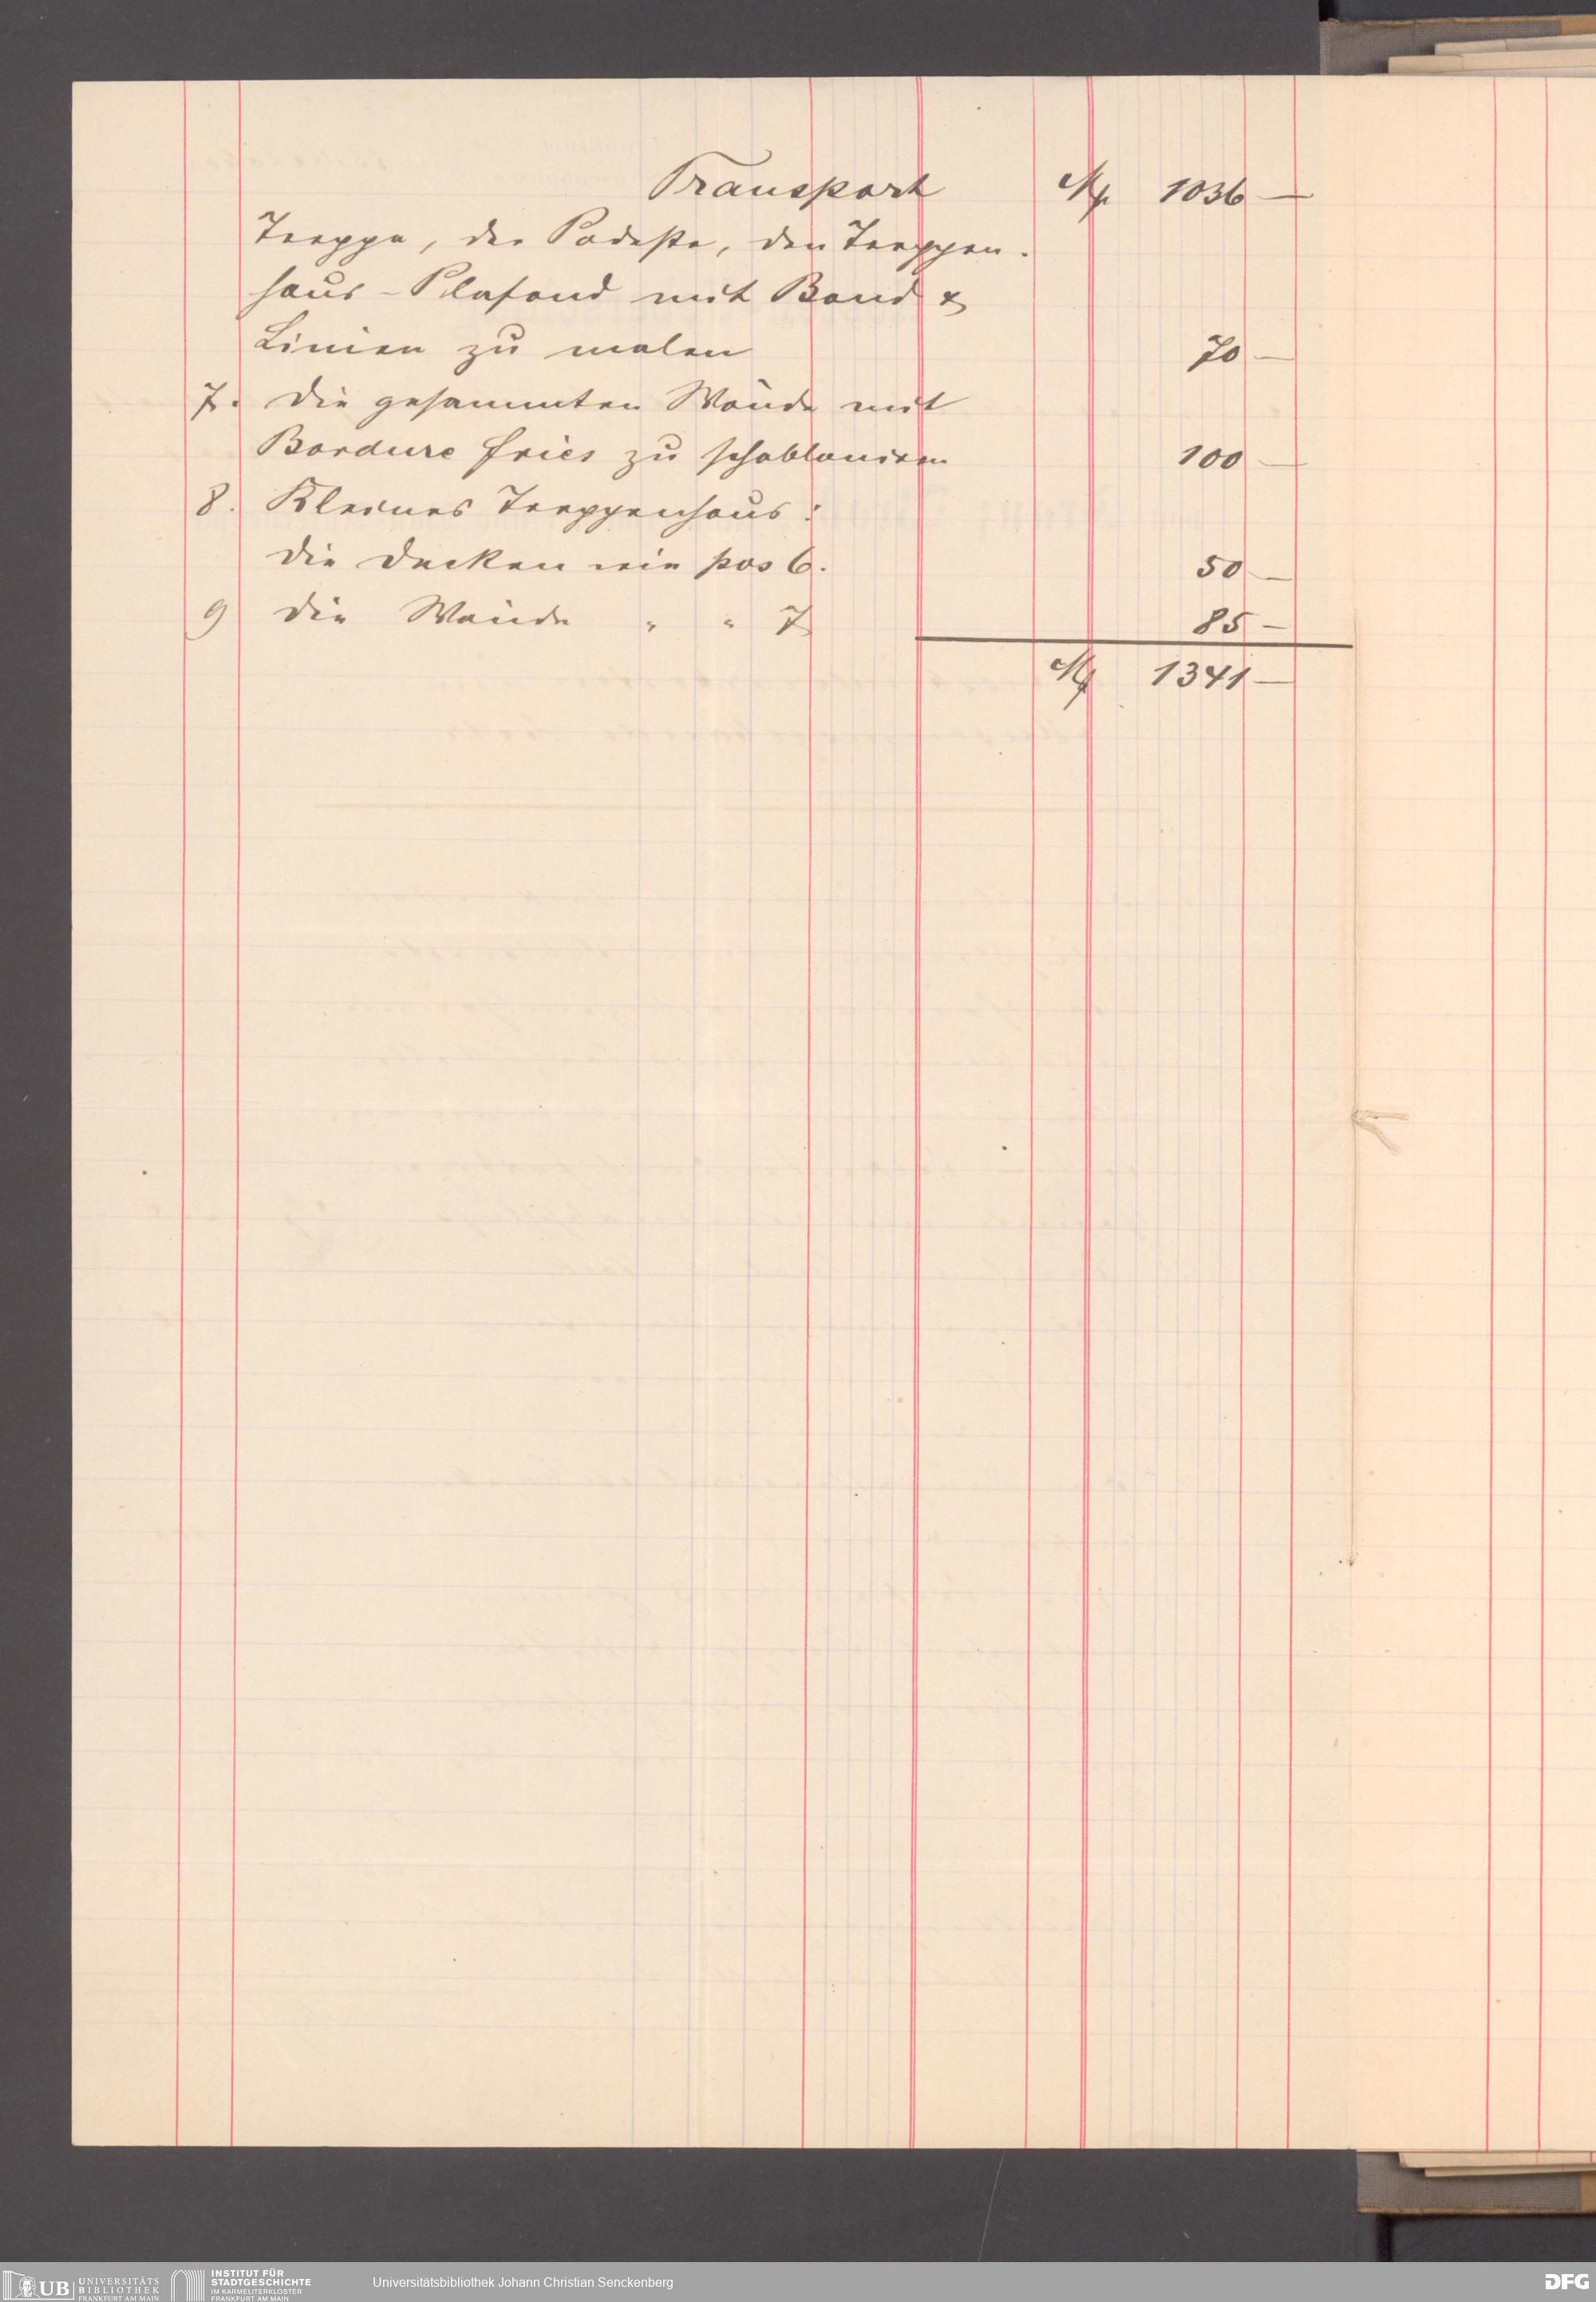 Transport M 1036 —
Treppe, der Podeste, den Treppen-
haus-Plafond mit Band &
Linien zu malen 70 —
7. Die gesammten Wände mit
Bordure fries zu schabloniren 100 —
8. Kleines Treppenhaus:
Die Decken wie pos 6. 50 —
9 Die Wände " " 7 85 —
M 1341 —
UB UNIVERSITÄTS
BIBLIOTHEK
FRANKFURT AM MAIN
INSTITUT FÜR
STADTGESCHICHTE
IM KARMELITERKLOSTER
FRANKFURT AM MAIN
Universitätsbibliothek Johann Christian Senckenberg
DFG